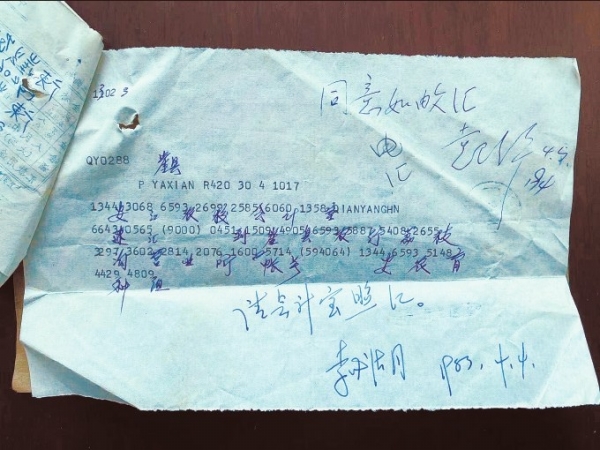 同意如数汇
电
汇
QY0288 崖县
P YAXIAN R420 30 4 1017
1344 3068 6593 2699 2585 6060 1358 QIANYANGHN
安江农校会计室
6643 0565 (9000) 0451 1509 4905 6593 5887 5408 2655
速汇 到崖县农行荔枝
3297 3602 2814 2076 1600 5714 (594064) 1344 6593 5148
沟营业所 帐号 安农育
4429 4809
种组
请会计室照汇。
1983.4.4.